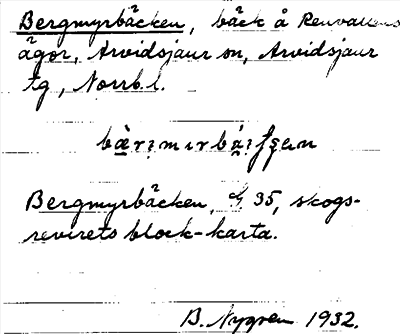 Bergmyrbäcken, bäck å Renvallens
ägor, Arvidsjaur sn, Arvidsjaur
tg, Norrb. l.
Bergmyrbäcken, G 35, skogs-
revirets block-karta.
B. Nygren 1932.